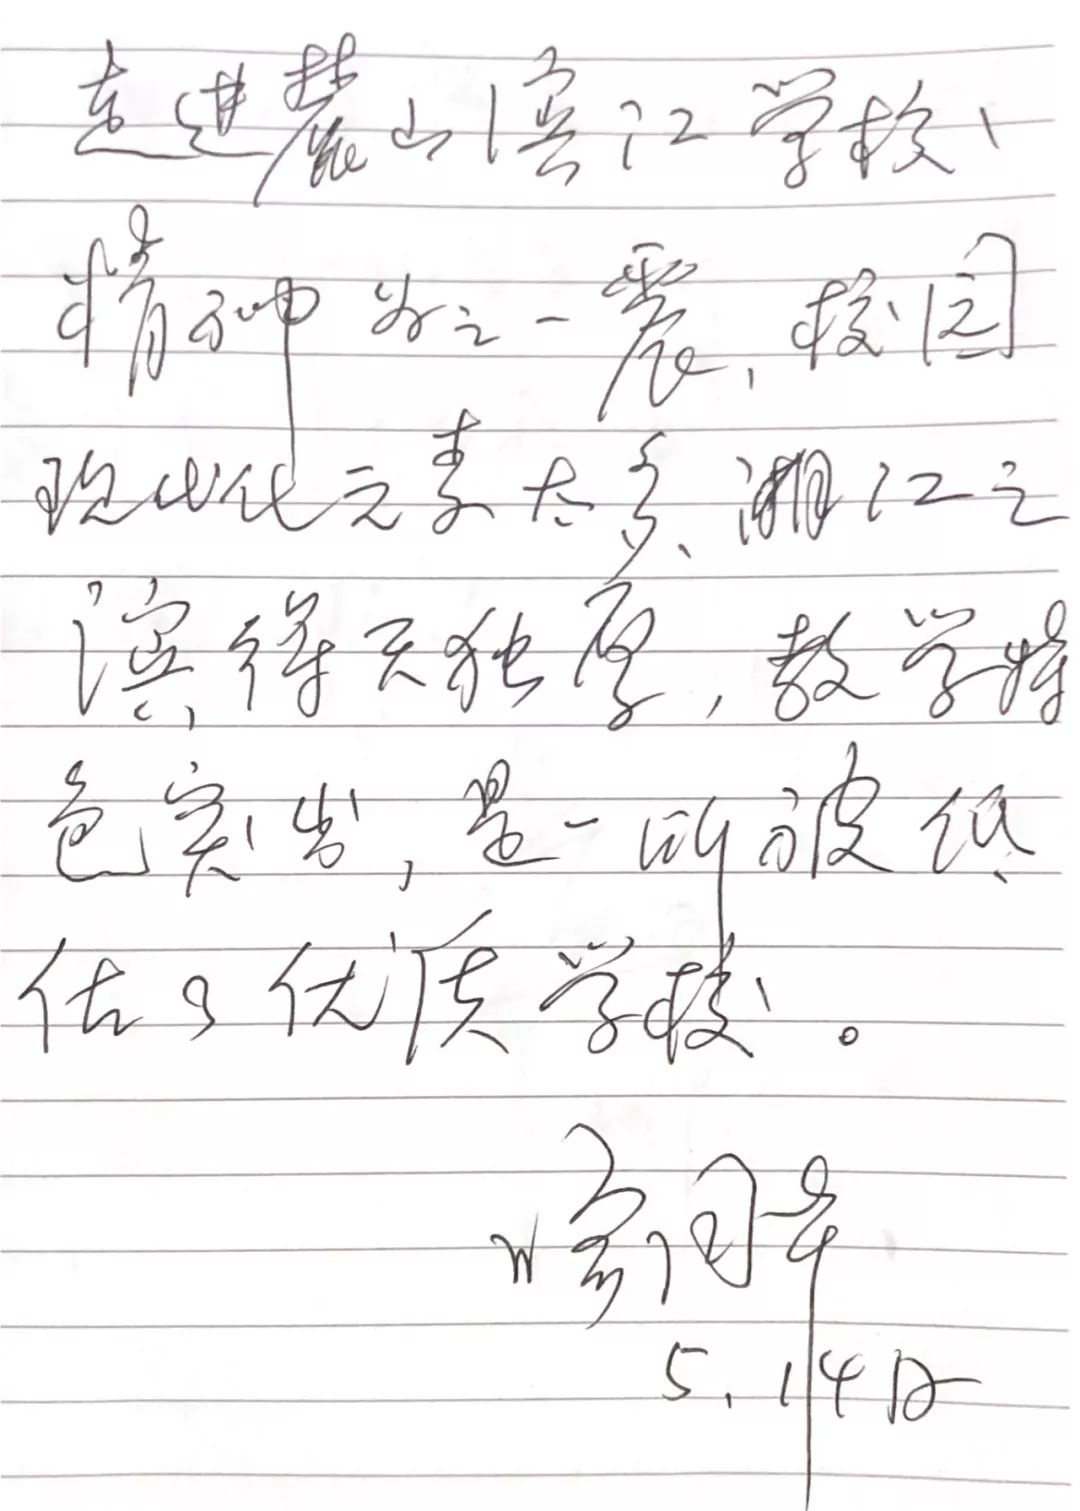 走进麓山滨江学校、
精神为之一震,校园
现代化元素太多、湘江之
滨,得天独厚,教学特
色突出,是一所被低
估的优质学校。
5.14日